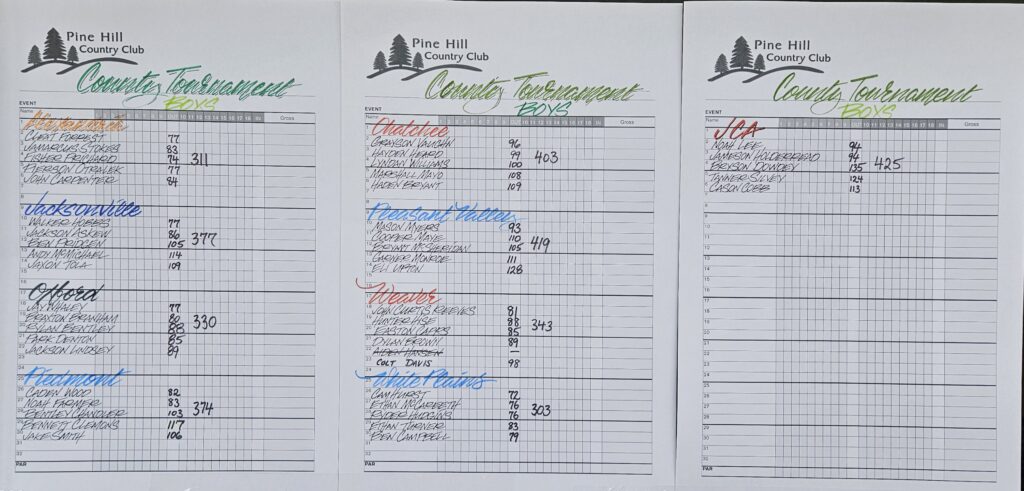 Pine Hill
Country Club
County Tournament
BOYS
EVENT
Name 1 2 3 4 5 6 7 8 9 OUT 10 11 12 13 14 15 16 17 18 IN Gross
CLINT FORREST 77
JAMARCUS STOKES 83
FISHER PRICHARD 74 311
PIERSON OTRALEK 77
JOHN CARPENTER 84
Jacksonville
WALKER HOBBS 77
JACKSON ASKEW 86
BEN PRIDGEN 105 377
ANDY MCMICHAEL 114
JAXON TOLA 109
Oxford
JAY WHALEY 77
BRAXTON BRANHAM 80
RYLAN BENTLEY 88 330
PARK DENTON 85
JACKSON LINDSEY 89
Piedmont
CADEN WOOD 82
NOAH FARMER 83
BENTLEY CHANDLER 103 374
BENNETT CLEMONS 117
JAKE SMITH 106
PAR
Pine Hill
Country Club
County Tournament
BOYS
EVENT
Name 1 2 3 4 5 6 7 8 9 OUT 10 11 12 13 14 15 16 17 18 IN Gross
Ohatchee
GRAYSON VAUGHN 96
HAYDEN HEARD 99
LYNDAN WILLIAMS 100 403
MARSHALL MAYO 108
HADEN BRYANT 109
Pleasant Valley
MASON MYERS 93
COOPER MAYE 110
BRYANT MCSHERIDAN 105 419
GARNER MONROE 111
ELI UPTON 128
Weaver
JOHN CURTIS REEVES 81
HUNTER HISE 88
EASTON 85 343
DYLAN BROWN 89
AIDEN HANSEN —
COLT DAVIS 98
White Plains
CAM HURST 72
ETHAN MCCARBETH 76
RYDER HUDGINS 76 303
ETHAN TURNER 83
BEN CAMPBELL 79
PAR
Pine Hill
Country Club
County Tournament
BOYS
EVENT
Name 1 2 3 4 5 6 7 8 9 OUT 10 11 12 13 14 15 16 17 18 IN Gross
JCA
NOAH LEE 94
JAMESON HOLDERREAD 94
BRYSON DOWDEY 135 425
TANNER SILVEY 124
CASON COBB 113
PAR